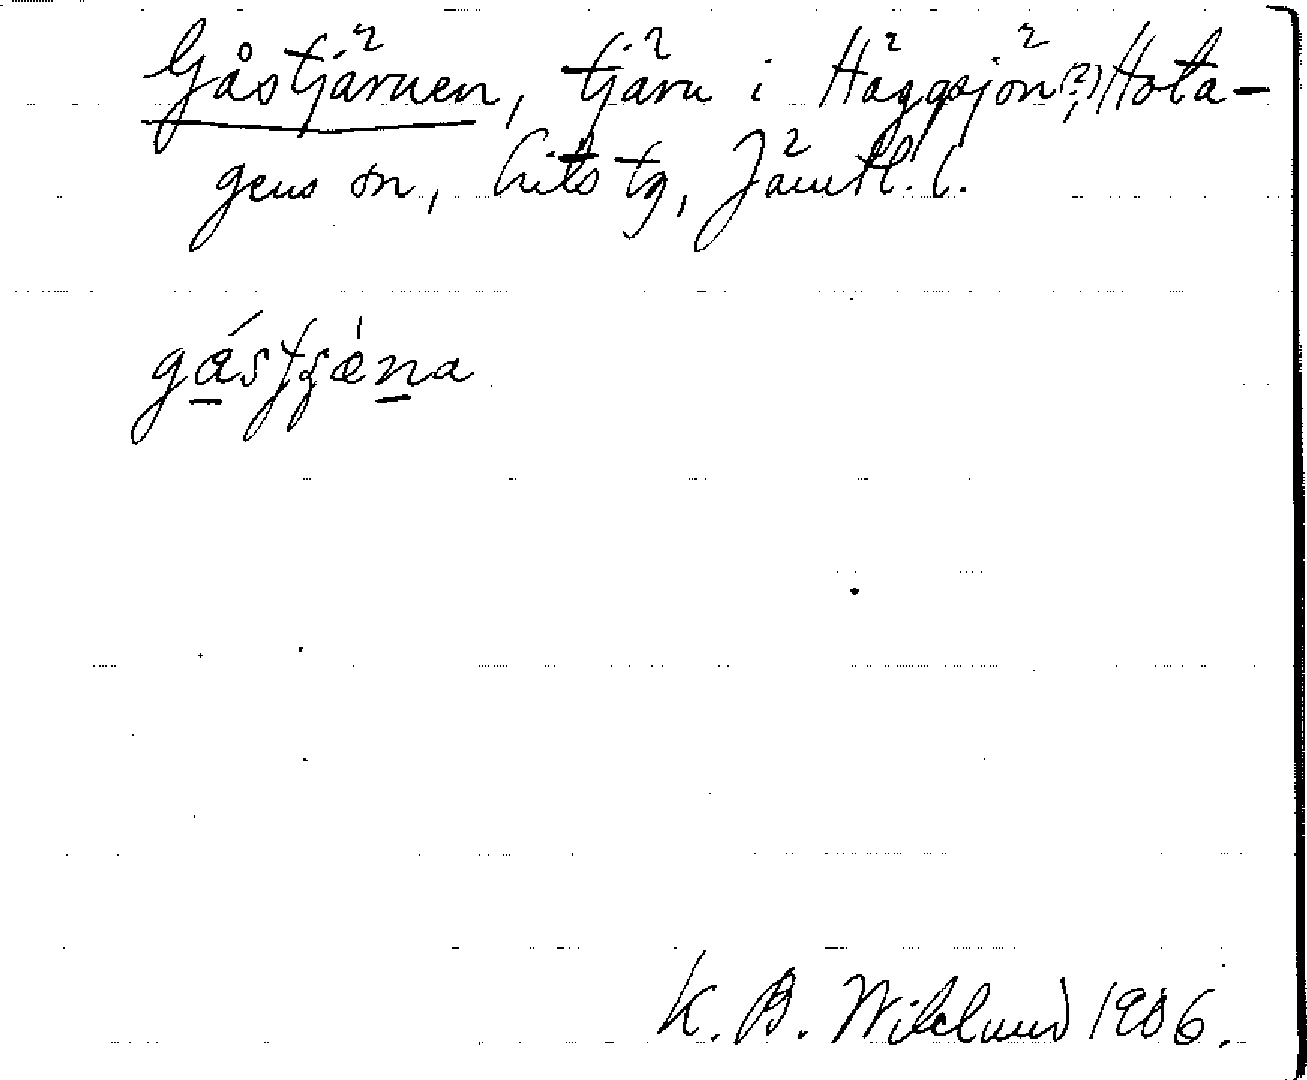 Gåstjärnen, tjärn i Häggsjön(?), Hota-
gens sn, Lits tg, Jämtl. l.
K. B. Wiklund 1906.